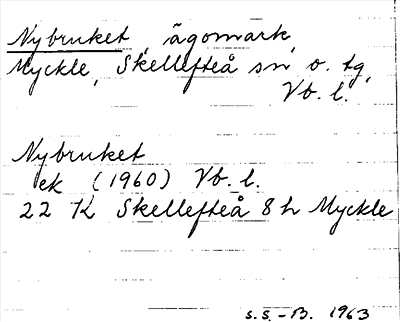 Nybruket, ägomark,
Myckle, Skellefteå sn o. tg,
Vb. l.
Nybruket
ek (1960) Vb. l.
22 K Skellefteå 8 h Myckle
S.S.-B. 1963